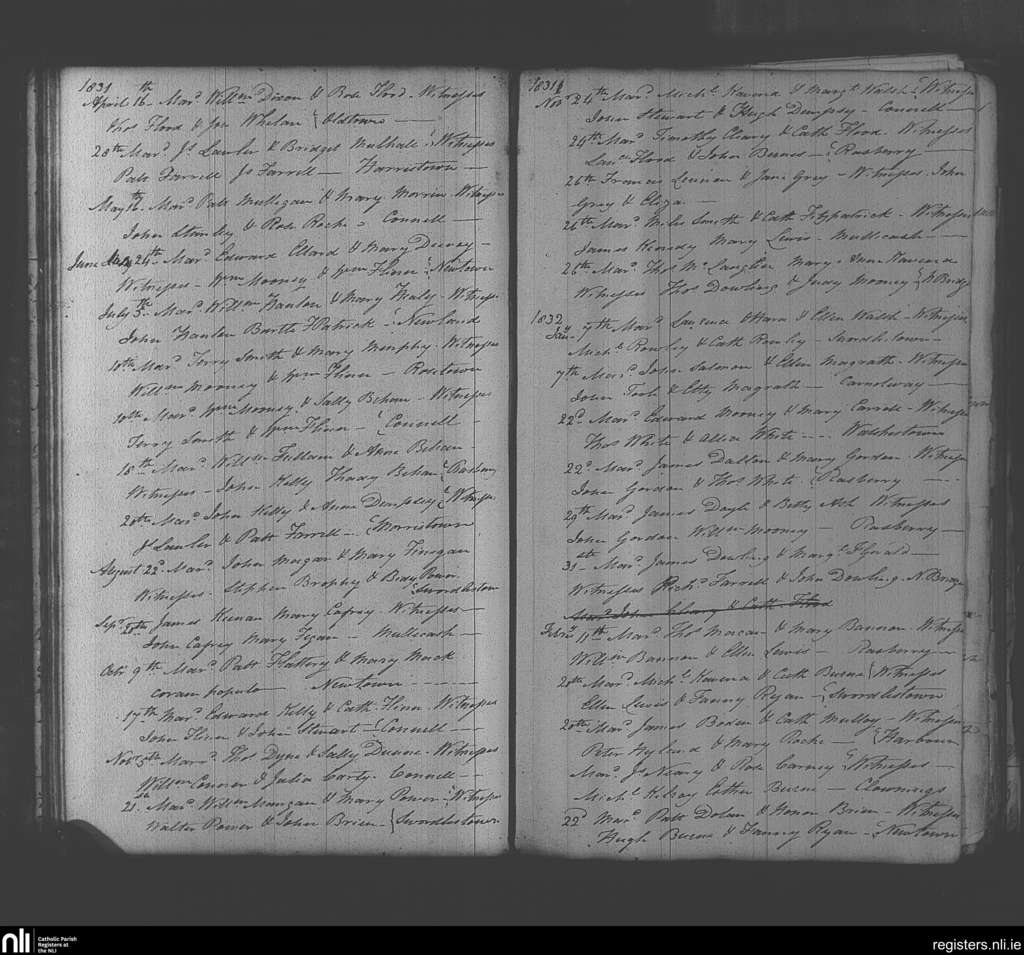 1831
April 16th Mard Willm Dixon & Rose Flood - Witnesses
Thos Flood & Jos Whelan { Oldtown
28th Mard Js Lawler & Bridget Mulhall - Witnesses
Patt Farrell Js Farrell - Harristown
May 16th Mard Patt Mulligan & Mary Morrin - Witnesses
John Stanley & Rose Roche - Connell
June 24th Mard Edward Ellard & Mary Deevy -
Witnesses - Wm Mooney & Wm Flinn { Newtown
July 3d Mard Willm Hanlon & Mary Healy - Witnesses
John Hanlon Bartle FPatrick { Newland
10th Mard Terry Smith & Mary Murphy - Witnesses
Willm Mooney & Wm Flinn - Rosetown
10th Mard Wm Mooney & Sally Behan - Witnesses
Terry Smith & Wm Flinn { Connell
18th Mard Willm Fullam & Anne Behan
Witnesses - John Kelly Thady Behan { Rasberry
20th Mard John Kelly & Anne Dempsey { Witnesses
Js Lawler & Patt Farrell - { Morristown
August 22d Mard John Mugan & Mary Finegan
Witnesses - Stephen Brophy & Biddy Power
Swordlestown
Sepr 25th James Keenan Mary Cafrey - Witnesses
John Cafrey Mary Fegan - Mullicash
Octr 9th Mard Patt Flattery & Mary Mack
coram populo Newtown
17th Mard Edward Kelly & Cath Flinn Witnesses
John Flinn & John Stewart { Connell
Nobr 5th Mard Thos Dyne & Sally Duane - Witnesses
Willm Connor & Julia Carty - Connell
21st Mard Willm Mangan & Mary Power { Witnesses
Walter Power & John Brien { Swordlestown
1831
Nov 24th Mard Michl Kavena & Margt Walsh { Witnesses
John Stewart & Hugh Dempsey - Connell
24th Mard Timothy Cleary & Cath Flood Witnesses
Lauce Flood & John Burne - { Rasberry
26th Francis Lennan & Jane Grey - Witnesses John
Grey & Eliza
26th Mard Miles Smith & Cath Fitzpatrick - Witnesses
James Kenedy Mary Lewis - Mullicash
26th Mard Thos McLauglin Mary Anne Kavena
Witnesses Thos Dowling & Judy Mooney { N Bridge
1832
Jany 7th Mard Laurence OHara & Ellen Walsh - Witnesses
Michl Rowley & Cath Rowley -
7th Mard John Salmon & Ellen Magrath - Witnesses
John Toole & Etty Magrath - Carnolway
22d Mard Edward Mooney & Mary Carroll - Witnesses
Thos White & Alice White - Walshestown
22d Mard James Dallon & Mary Gordon - Witnesses
John Gordon & Thos White { Rasberry
29th Mard James Doyle & Betty Ash Witnesses
John Gordon Willm Mooney - Rasberry
31st Mard James Dowling & Margt FGerald
Witnesses Richd Farrell & John Dowling - N. Bridge
Mard John Cleary & Cath Flood
Febry 11th Mard Thos Macan & Mary Bannon - Witnesses
Willm Bannon & Ellen Lewis - Rasberry
20th Mard Michl Kavena & Cath Burne { Witnesses
Ellen Lewis & Fanny Ryan - { Swordlestown
20th Mard James Boden & Cath Mulloy - Witnesses
Peter Hyland & Mary Roche - { Harbour
Mard Js Neary & Rose Carney { Witnesses
Michl Kelsey Esther Burne - Clownings
22d Mard Patt Dolan & Honor Brien - Witnesses
Hugh Burne & Fanny Ryan - { Newtown
nli Catholic Parish
Registers at
the NLI
registers.nli.ie